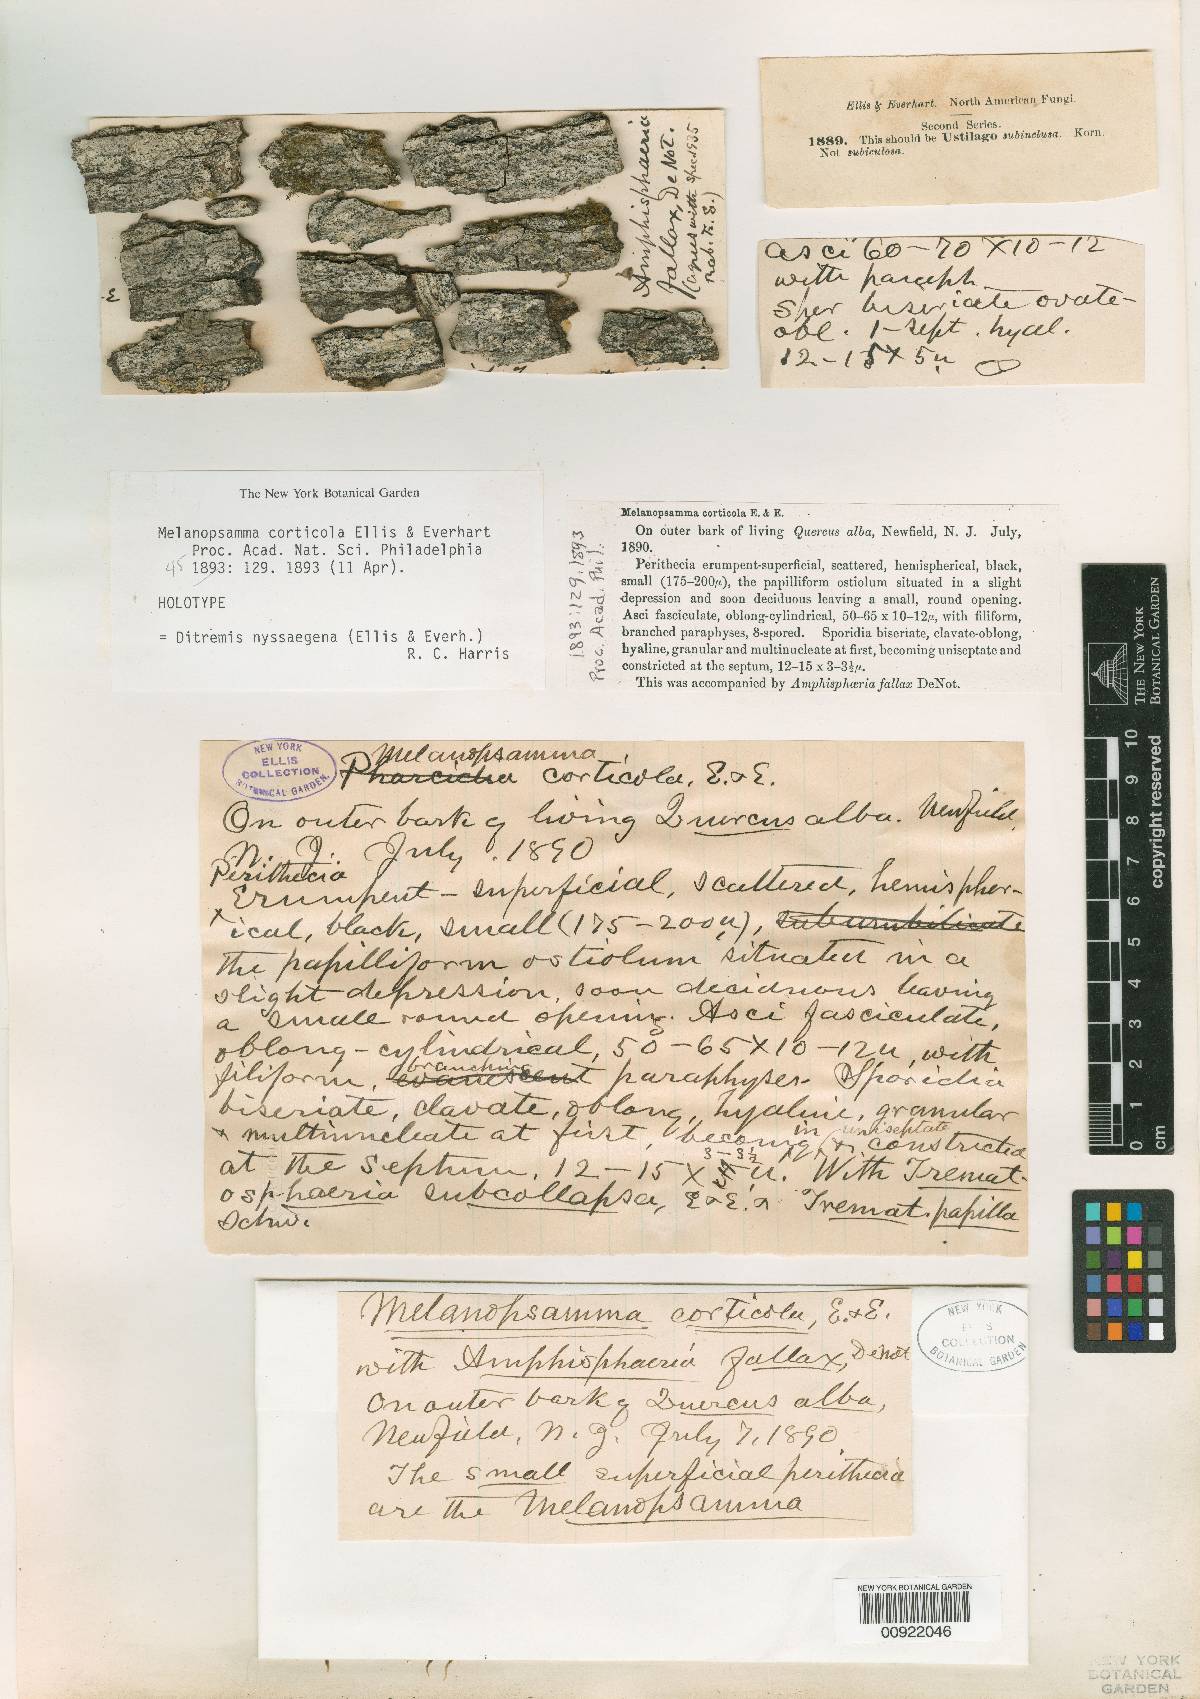 Ellis & Everhart. North American Fungi.
Second Series.
1889. This should be Ustilago subinclusa. Korn.
Not subiculosa.
Amphisphaeria
fallax, DeNot.
(agrees with spec. 1935
Rab. F. E.)
asci 60-70 x 10-12
with paraph
Sper biseriate ovate-
obl. 1-sept. hyal.
12-15 x 5u
The New York Botanical Garden
Melanopsamma corticola Ellis & Everhart
Proc. Acad. Nat. Sci. Philadelphia
45 1893: 129. 1893 (11 Apr).
HOLOTYPE
= Ditremis nyssaegena (Ellis & Everh.)
R. C. Harris
1893:129.1893
Proc. Acad. Phil.
Melanopsamma corticola E. & E.
On outer bark of living Quercus alba, Newfield, N. J. July,
1890.
Perithecia erumpent-superficial, scattered, hemispherical, black,
small (175–200µ), the papilliform ostiolum situated in a slight
depression and soon deciduous leaving a small, round opening.
Asci fasciculate, oblong-cylindrical, 50–65 x 10–12µ, with filiform,
branched paraphyses, 8-spored. Sporidia biseriate, clavate-oblong,
hyaline, granular and multinucleate at first, becoming uniseptate and
constricted at the septum, 12–15 x 3–3½µ.
This was accompanied by Amphisphæria fallax DeNot.
NEW YORK
ELLIS
COLLECTION
BOTANICAL GARDEN.
Melanopsamma
Pharcidia corticola, E. & E.
On outer bark of living Quercus alba. Newfield,
N. J. July. 1890
Perithecia
Erumpent-superficial, scattered, hemispher-
ical, black, small (175-200u), subumbilicate
the papilliform ostiolum situated in a
slight depression, soon deciduous leaving
a small round opening. Asci fasciculate,
oblong-cylindrical, 50-65 x 10-12u, with
branching
filiform, evanescent paraphyses. Sporidia
biseriate, clavate, oblong, hyaline, granular
uniseptate
& multinucleate at first, becoming & constricted
3-3½
at the septum, 12-15 x u. With Tremat-
osphaeria subcollapsa, E & E. & Tremat. papilla
Schw.
Melanopsamma corticola, E. & E.
with Amphisphaeria fallax, DeNot
On outer bark of Quercus alba,
Newfield, N. J. July 7, 1890
The small superficial perithecia
are the Melanopsamma
NEW YORK
ELLIS
COLLECTION
BOTANICAL GARDEN
NEW YORK BOTANICAL GARDEN
00922046
THE NEW YORK
BOTANICAL GARDEN
10 9 8 7 6 5 4 3 2 1 0
cm
copyright reserved
NEW YORK
BOTANICAL
GARDEN